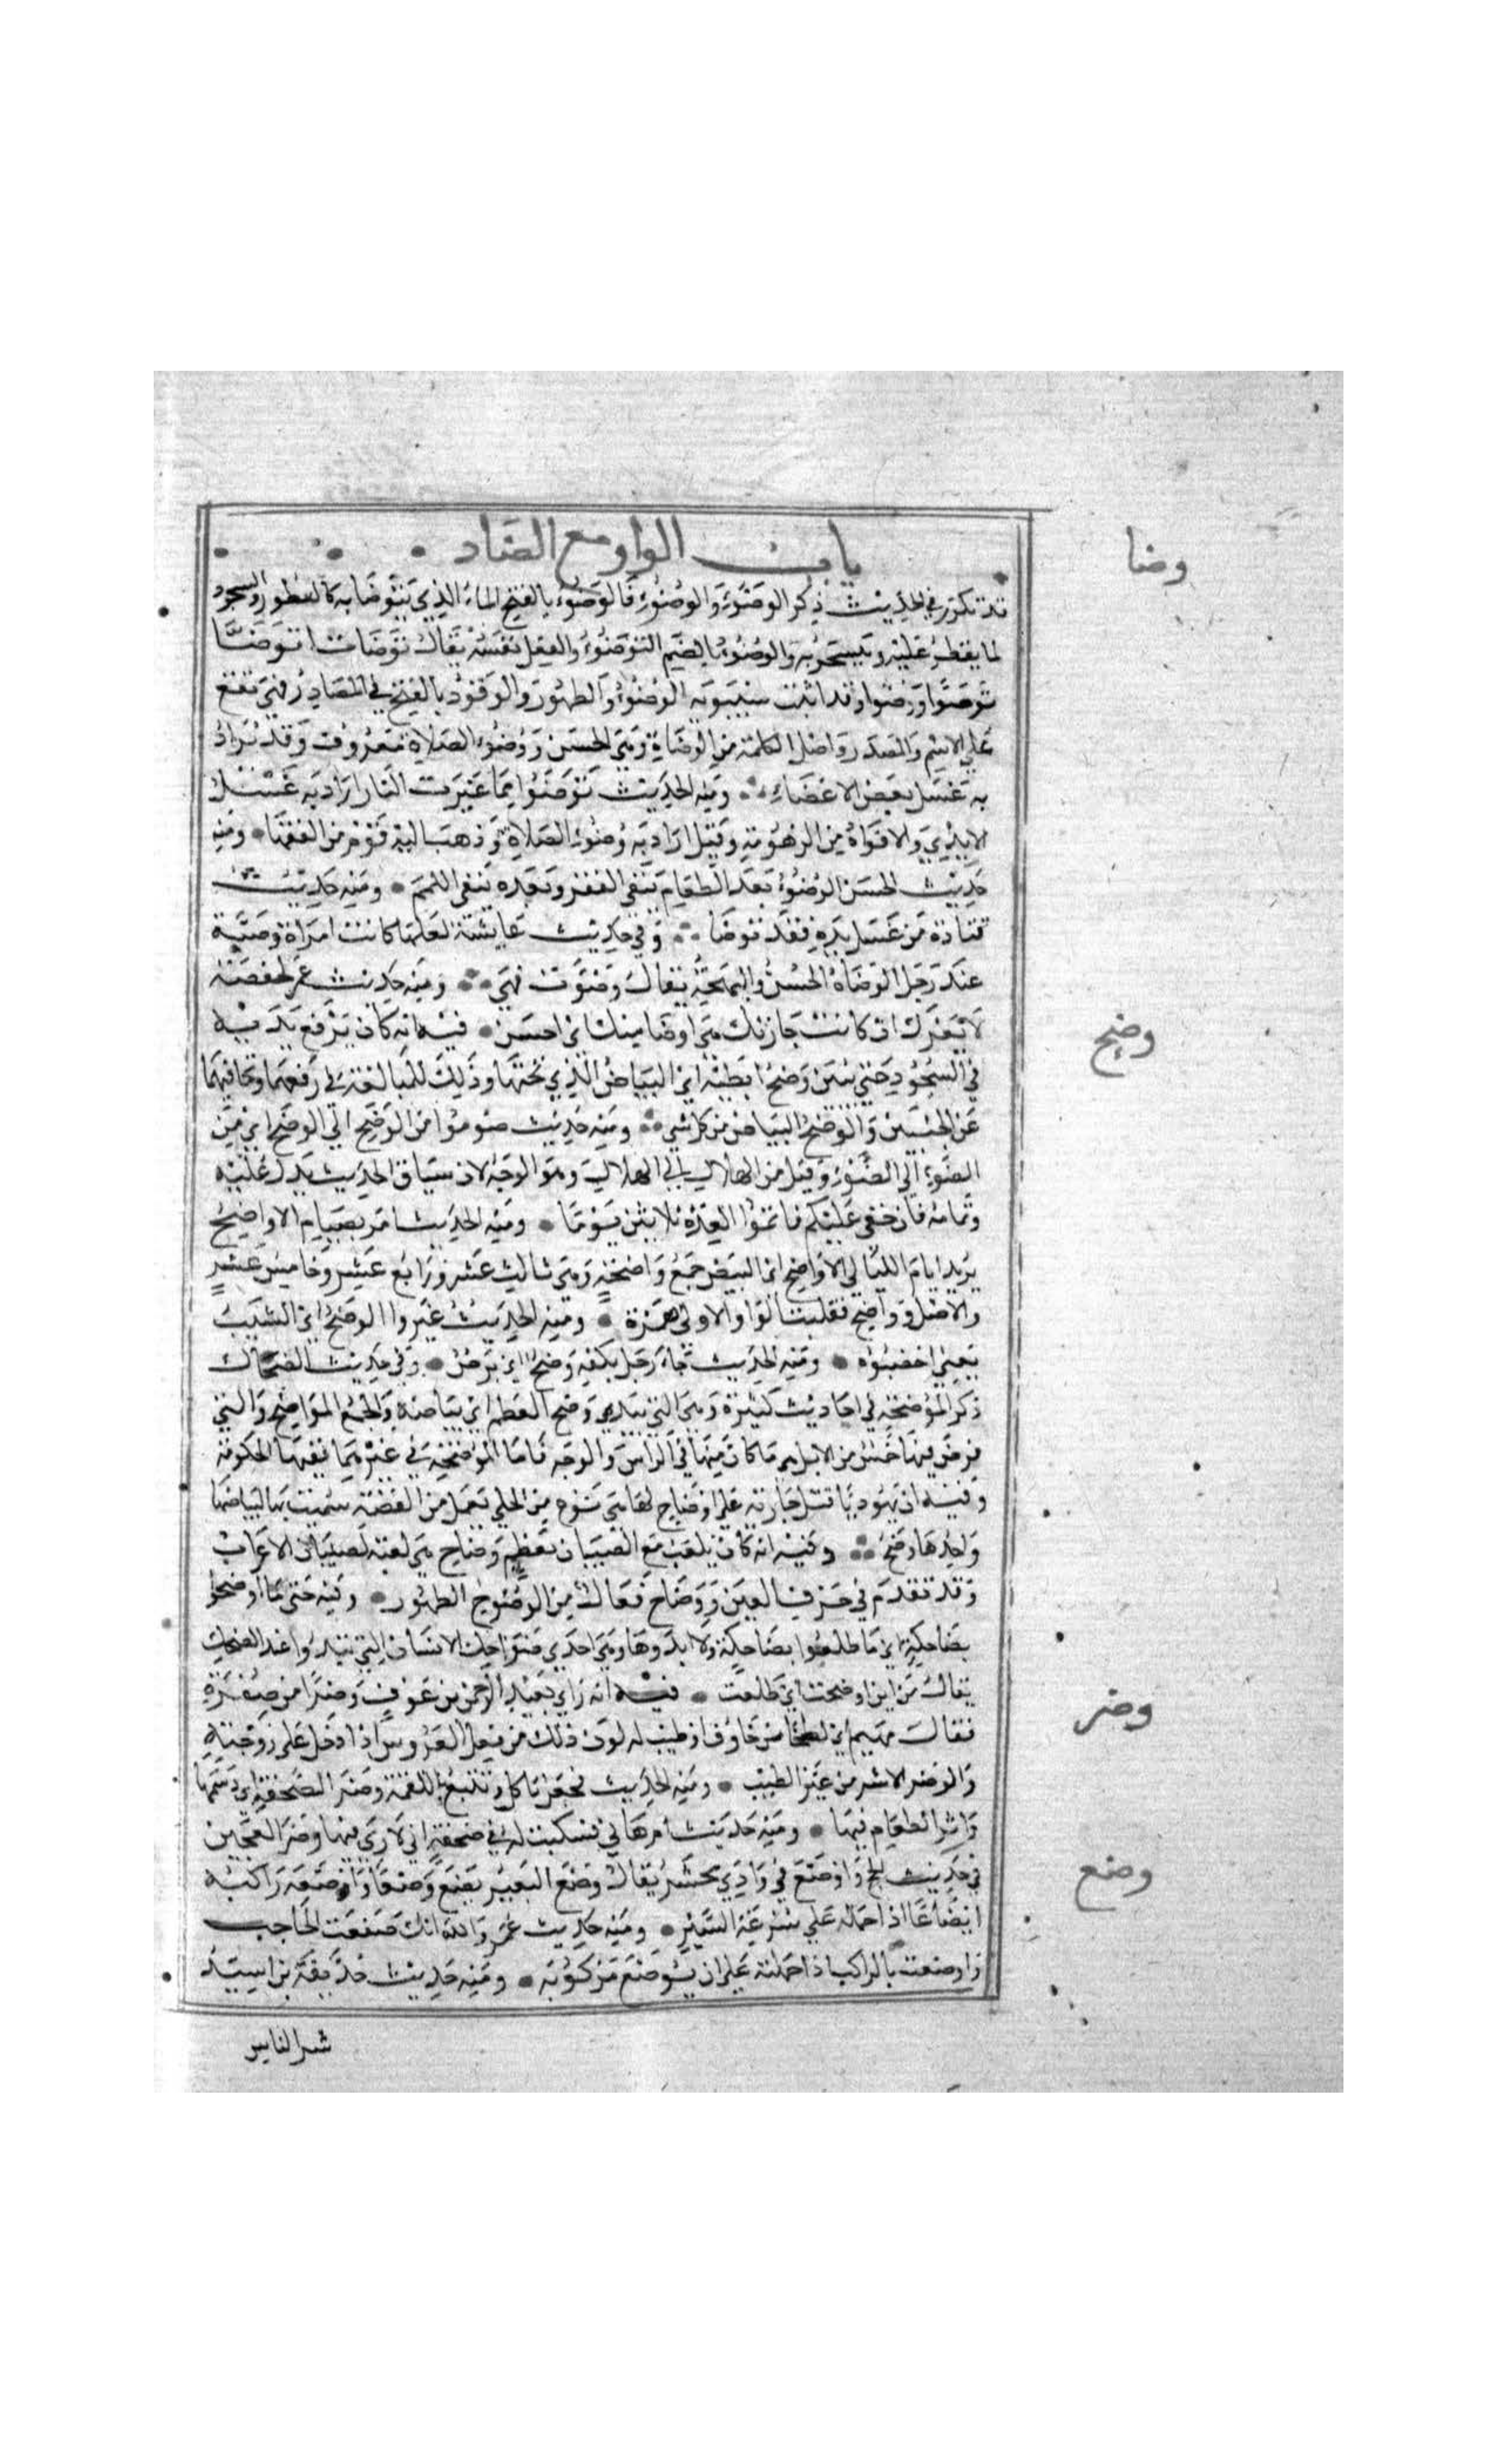 باب الواو مع الضاد
وضا
قد تكرر في الحديث ذكر الوَضُوء وَالوُضُوء فَالوَضوء بالفتح الماء الذي يتوضا به كالفطور والسحور
لما يفطر عليه ويتسحر به والوضوء بالضم التوضؤ والفعل نفسه يقال توضات اتوضا
توضؤا ووضوا وقد اثبت سيبويه الوضوء والطهور والوقود بالفتح في المصادر فهي تقع
علي الاسم والمصدر واصل الكلمة من الوضاة وهي الحسن ووضوء الصلاة معروف وقد يراد
به غسل بعض الاعضاء ومنه الحديث توضؤا مما غيرت النار اراد به غسل
الايدي والافواه من الزهومة وقيل اراد به وضوء الصلاة وذهب اليه قوم من الفقها ومنه
حديث الحسن الوضوء بعد الطعام ينفي الفقر وبعده ينفي اللمم ومنه حديث
قتادة من غسل يده فقد توضا وفي حديث عايشة لعلها كانت امراة وضيّة
عند رجل الوضاة الحسن والبهجة يقال وضوت فهي ومنه حديث عمر لحفصة
لا يغرك ان كانت جارتك هي اوضا منك اي احسن فيه انه كان يرفع يديه
وضح
في السجود حتي يبين وضح ابطيه اي البياض الذي تحتها وذلك للمبالغة في رفعهما وتجافيهما
عن الجنبين والوضح البياض من كل شي ومنه حديث صوموا من الوضح الي الوضح اي من
الضوء الي الضوء وقيل من الهلال الي الهلال وهو الوجه لان سياق الحديث يدل عليه
وتمامه فان خفي عليكم فاتموا العدة ثلاثين يوما ومنه الحديث امر بصيام الاواضح
يريد ايام الليالي الاواضح اي البيض جمع واضحة وهي ثالث عشر ورابع عشر وخامس عشر
والاصل وواضح فقلبت الواو الاولي همزة ومنه الحديث غيروا الوضح اي الشيب
يعني اخضبوه ومنه الحديث جاء رجل بكفه وضح اي برص وفي حديث الضحاك
ذكر الموضحة في احاديث كثيرة وهي التي تبدي وضح العظم اي بياضه والجمع المواضح والتي
فرض فيها خمس من الابل هي ما كان منها في الراس والوجه فاما الموضحة في غيرهما ففيها الحكومة
وفيه ان يهوديا قتل جارية علي اوضاح لها هي نوع من الحلي تعمل من الفضة سميت بها لبياضها
واحدها وضح وفيه انه كان يلعب مع الصبيان بعظم وضاح هي لعبة لصبيان الاعراب
وقد تقدم في حرف العين ووضاح فعال من الوضوح الظهور وفيه حتي ما اوضحوا
بضاحكة اي ما طلعوا بضاحكة ولا ابدوها وهي احدي ضواحك الانسان التي تبدوا عند الضحك
يقال من اين اوضحت اي طلعت فيه انه راي بعبد الرحمن بن عوف وضرا من صفرة
وضر
فقال مهيم اي لطخا من خلوق او طيب له لون ذلك من فعل العروس اذا دخل علي زوجته
والوضر الاثر من غير الطيب ومنه الحديث فجعل ياكل ويتتبع باللقمة وضر الصحفة اي دسمها
واثر الطعام فيها ومنه حديث ام هاني فسكبت له في صحفة اني لاري فيها وضر العجين
وضع
في حديث الحج واوضع في وادي محسر يقال وضع البعير يضع وضعا واوضعه راكبه
ايضاعا اذا حمله علي سرعة السير ومنه حديث عمر والله انك صنعت لحاجب
واوضعت بالراكب اذا حملته علي ان يوضع مركوبه ومنه حديث حذيفة بن اسيد
شر الناس